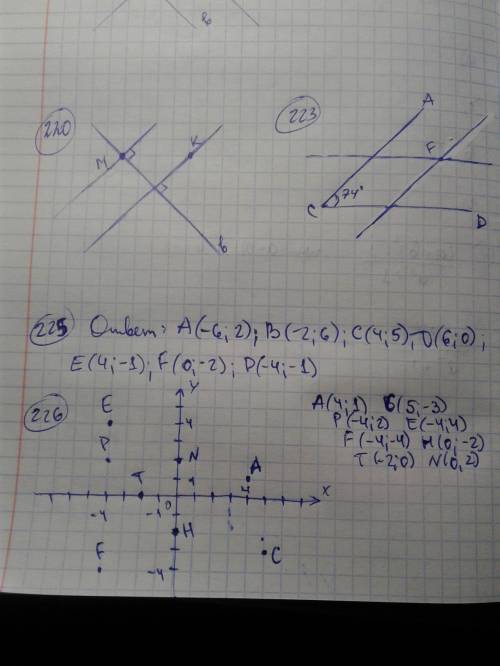 b
220
M
K
b
223
A
F
74°
C
D
225 Ответ: A(-6; 2); B(-2; 6); C(4; 5), D(6; 0);
E(4; -1); F(0; -2); P(-4; -1)
226
A(4; 1) C(5; -3)
P(-4; 2) E(-4; 4)
F(-4; -4) H(0; -2)
T(-2; 0) N(0; 2)
y
E
4
P
N
T
1
A
-4
-1
0
4
x
H
F
C
-4